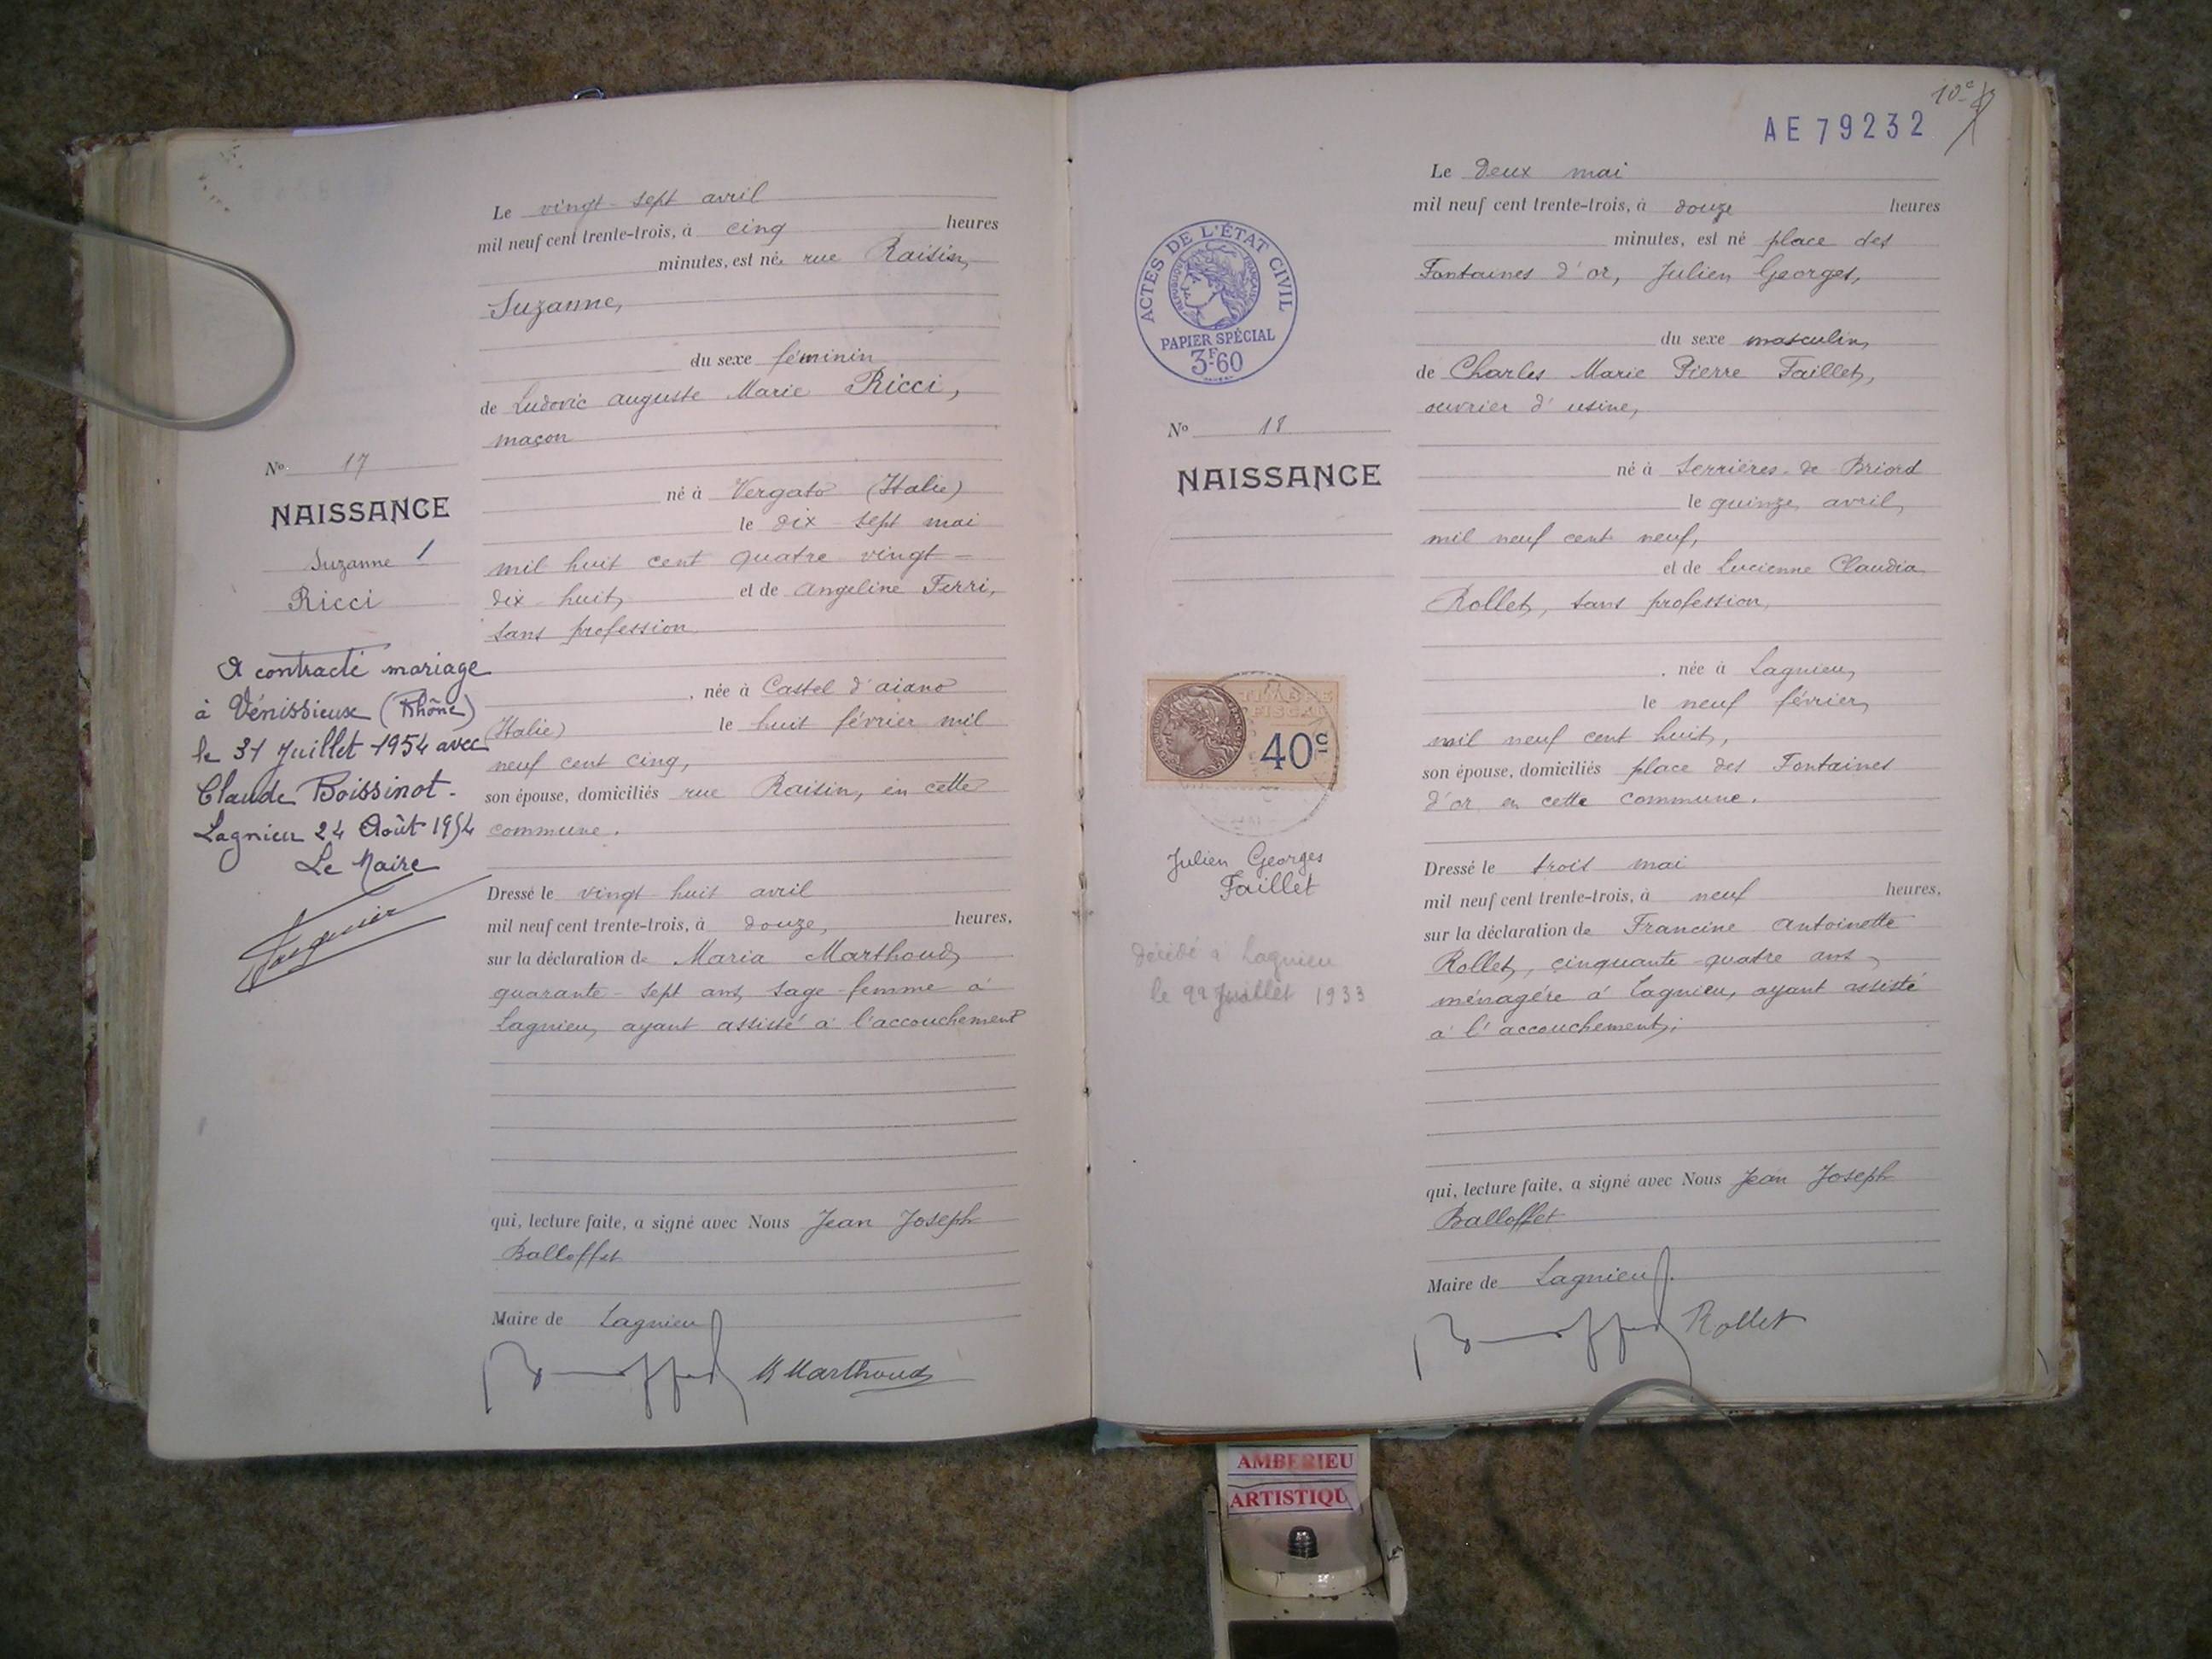 Le vingt-sept avril
mil neuf cent trente-trois, à cinq heures
minutes, est née rue Raisin,
Suzanne,
du sexe féminin
de Ludovic Auguste Marie Ricci,
maçon
No 17
NAISSANCE
Suzanne 1
Ricci
né à Vergato (Italie)
le dix-sept mai
mil huit cent quatre vingt-
dix-huit, et de Angeline Ferri,
sans profession
, née à Castel d'aiano
(Italie) le huit février mil
neuf cent cinq,
son épouse, domiciliés rue Raisin, en cette
commune.
A contracté mariage
à Vénissieux (Rhône)
le 31 Juillet 1954 avec
Claude Boissinot.
Lagnieu 24 Août 1954
Le Maire
Dressé le vingt-huit avril
mil neuf cent trente-trois, à douze, heures.
sur la déclaration de Maria Marthoud,
quarante-sept ans, sage-femme à
Lagnieu, ayant assisté à l'accouchement
qui, lecture faite, a signé avec Nous Jean Joseph
Balloffet
Maire de Lagnieu.
M Marthoud
10e
AE 79232
Le deux mai
mil neuf cent trente-trois, à douze heures
minutes, est né place des
Fontaines d'or, Julien Georges,
du sexe masculin,
de Charles Marie Pierre Faillet,
ouvrier d'usine,
ACTES DE L'ÉTAT CIVIL
RÉPUBLIQUE FRANÇAISE
PAPIER SPÉCIAL
3F60
No 18
NAISSANCE
né à Serrières-de-Briord
le quinze avril,
mil neuf cent neuf,
et de Lucienne Claudia
Rollet, sans profession,
, née à Lagnieu,
le neuf février,
mil neuf cent huit,
son épouse, domiciliés place des Fontaines
d'or en cette commune.
TIMBRE
FISCAL
40c
Julien Georges
Faillet
décédé à Lagnieu
le 22 Juillet 1933
Dressé le trois mai
mil neuf cent trente-trois, à neuf heures,
sur la déclaration de Francine Antoinette
Rollet, cinquante-quatre ans,
ménagère à Lagnieu, ayant assisté
à l'accouchement;
qui, lecture faite, a signé avec Nous Jean Joseph
Balloffet
Maire de Lagnieu.
Rollet
AMBERIEU
ARTISTIQU